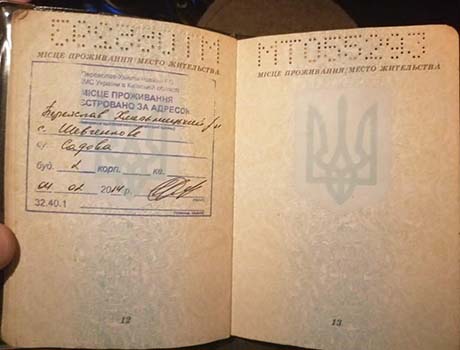 МІСЦЕ ПРОЖИВАННЯ/МЕСТО ЖИТЕЛЬСТВА
Переяслав-Хмельницький
ДМС України в Київській області
МІСЦЕ ПРОЖИВАННЯ
ЄСТРОВАНО ЗА АДРЕСОЮ
Переяслав Хмельницький р-н
с. Шевченкове
ву Садова
буд. 2 корп. кв.
04 02 2014 р.
32.40.1
12
МТ055293
МІСЦЕ ПРОЖИВАННЯ/МЕСТО ЖИТЕЛЬСТВА
13